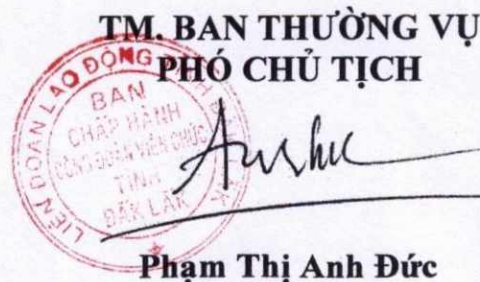 TM. BAN THƯỜNG VỤ
PHÓ CHỦ TỊCH
LIÊN ĐOÀN LAO ĐỘNG
BAN
CHẤP HÀNH
CÔNG ĐOÀN VIÊN CHỨC
TỈNH
ĐẮK LẮK
Phạm Thị Anh Đức